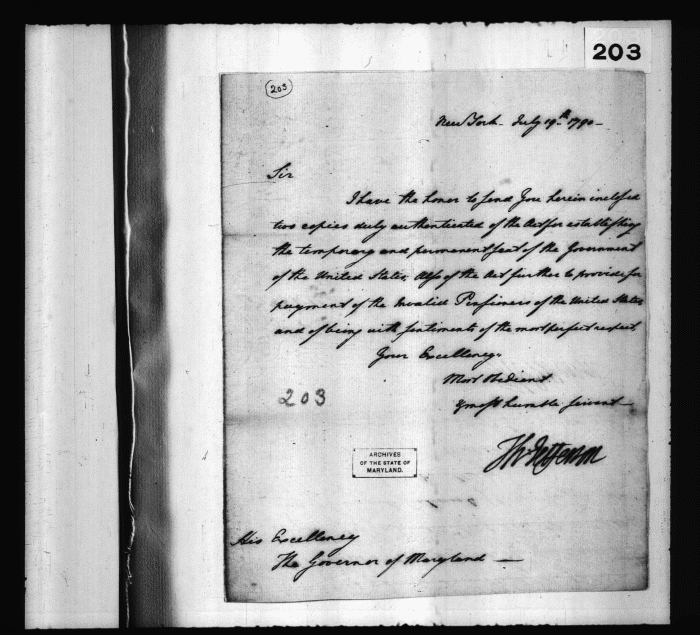 203
203
New York July 19th 1790
Sir
I have the honor to send you herein inclosed
two copies duly authenticated of the Act for establishing
the temporary and permanent seat of the Government
of the United States, Also of the Act further to provide for
payment of the Invalid Pensioners of the United States
and of being with sentiments of the most perfect respect
Your Excellency's
Most Obedient
& most humble servant
203
ARCHIVES
OF THE STATE OF
MARYLAND.
Th: Jefferson
His Excellency
The Governor of Maryland